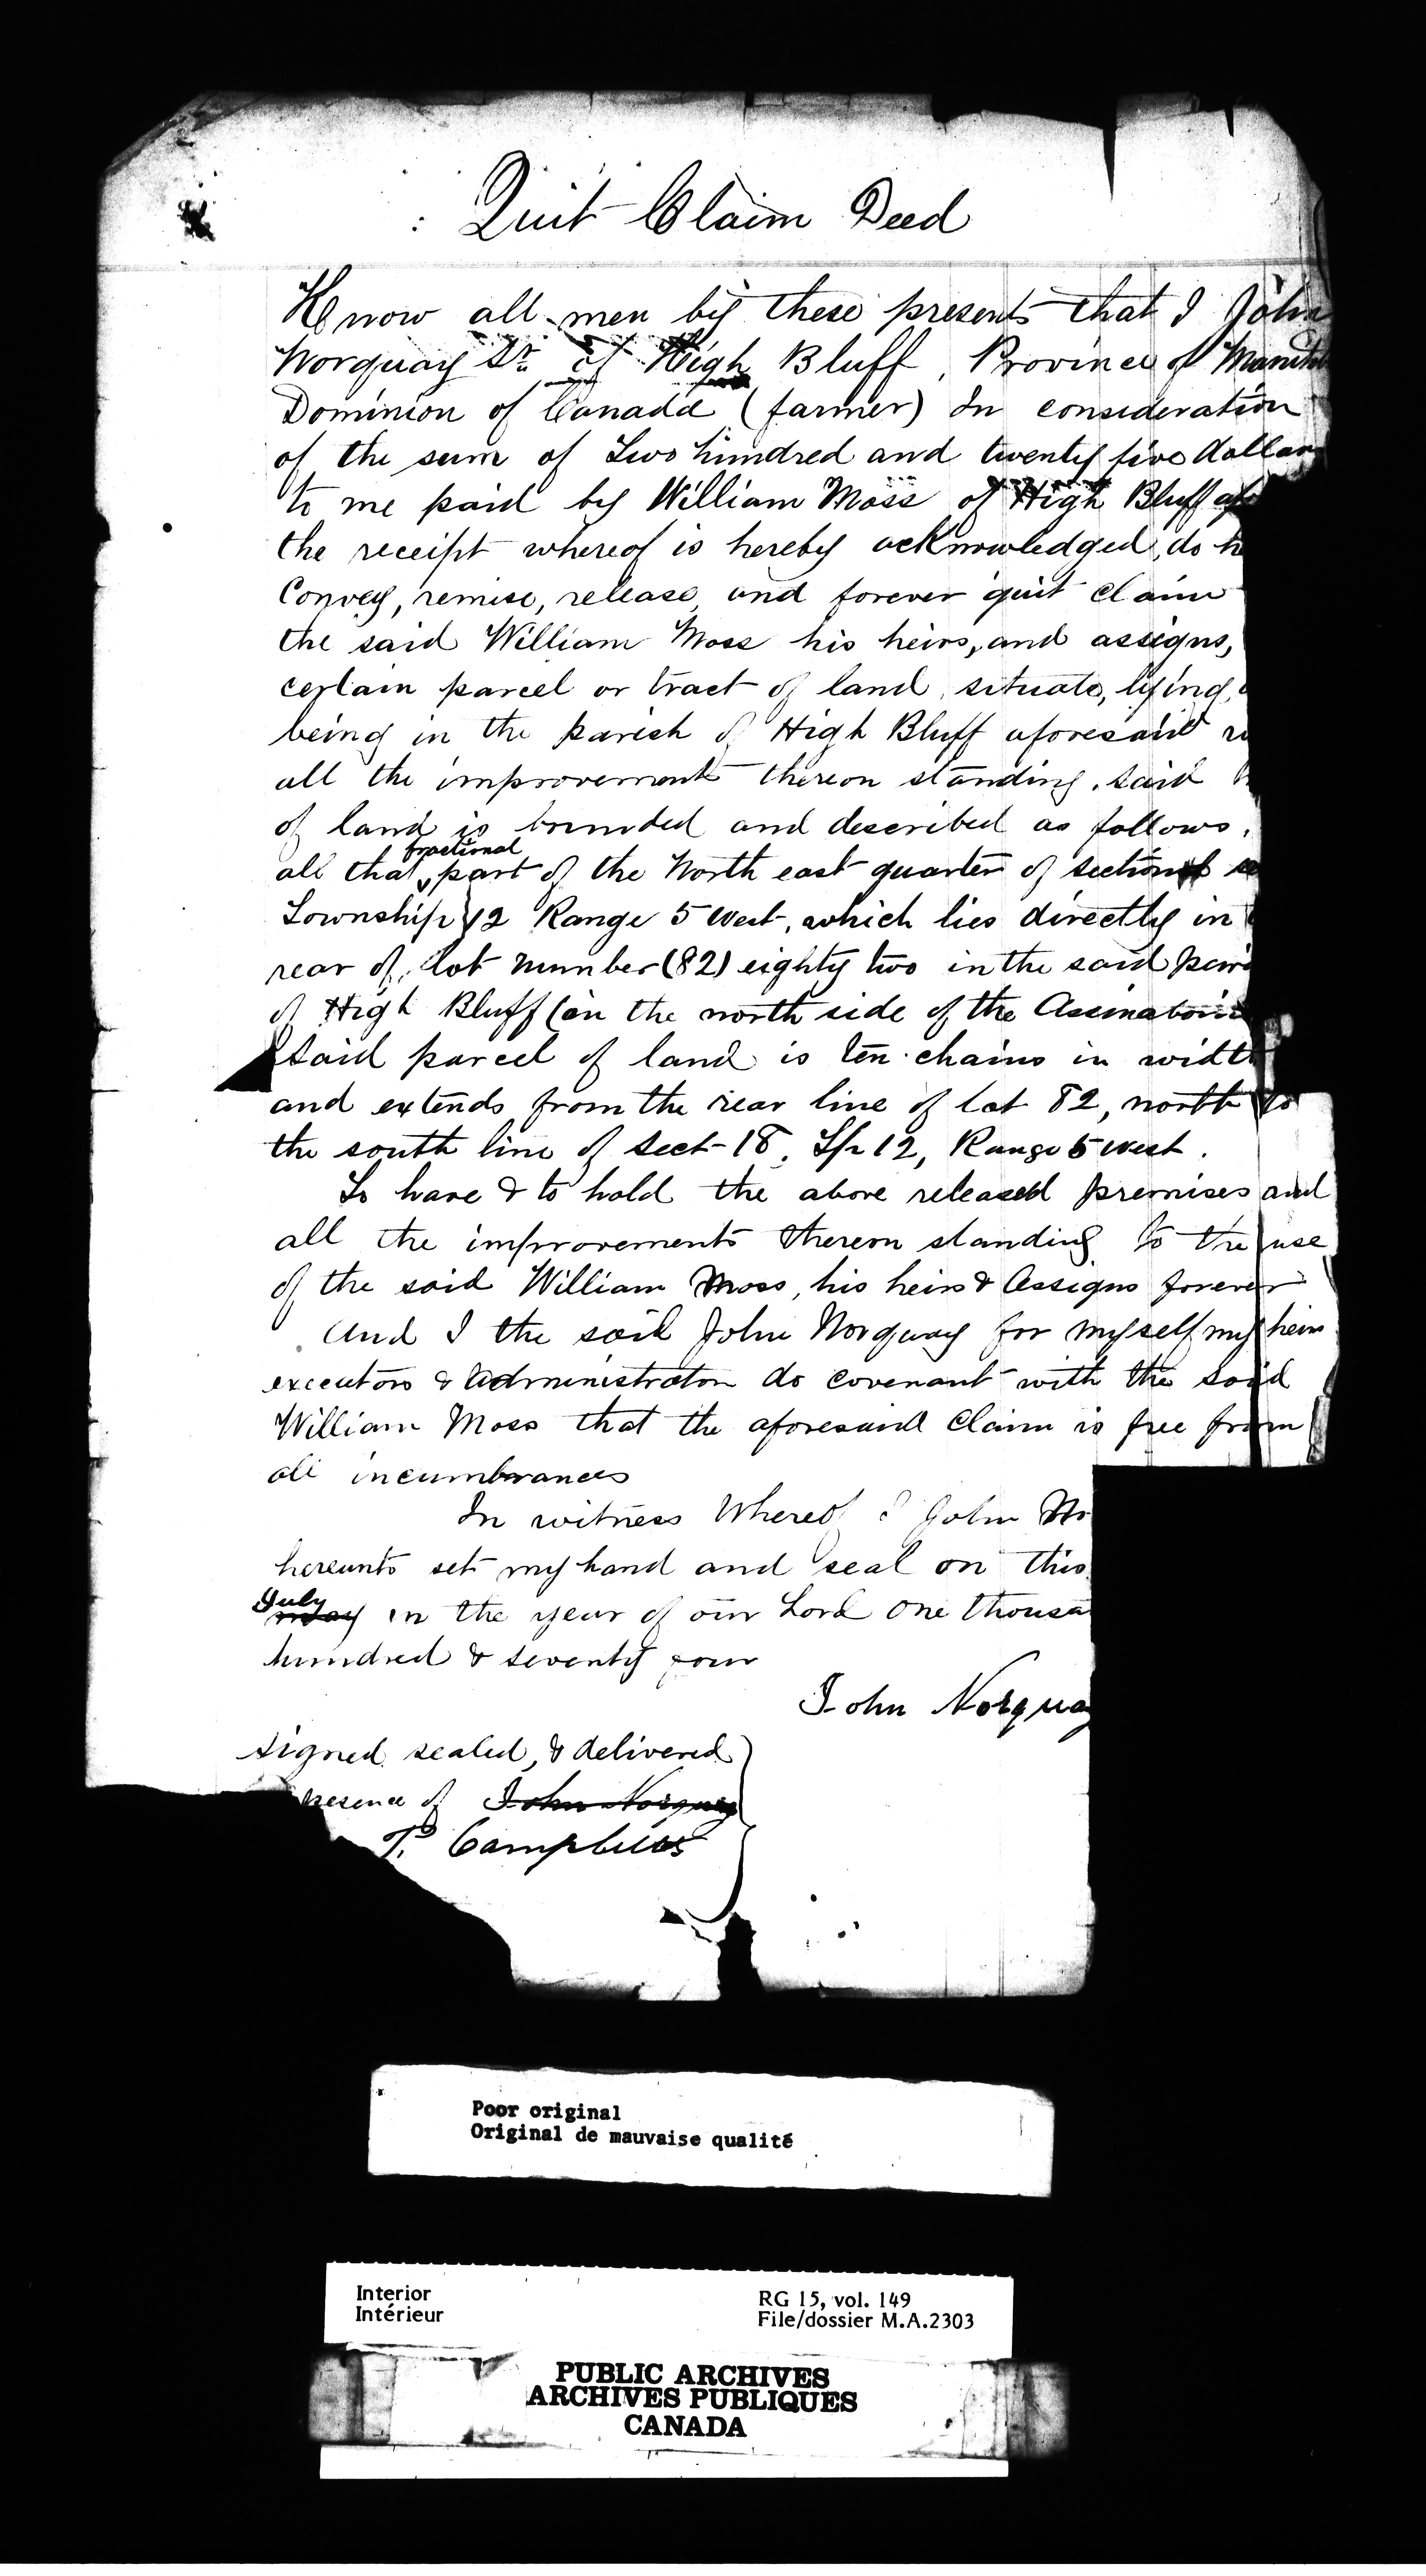 Quit Claim Deed
Know all men by these presents that I John
Norquay Sr. of High Bluff, Province of Manito
Dominion of Canada (farmer) In consideration
of the sum of Two hundred and twenty five dollars
to me paid by William Moss of High Bluff afo
the receipt whereof is hereby acknowledged, do h
Convey, remise, release, and forever quit claim
the said William Moss his heirs, and assigns,
certain parcel or tract of land, situate, lying,
being in the parish of High Bluff aforesaid
all the improvements thereon standing. Said
of land is bounded and described as follows,
fractional
all that part of the North east quarter of section
Township 12 Range 5 West, which lies directly in
rear of lot number (82) eighty two in the said pari
of High Bluff (on the north side of the Assinaboine
Said parcel of land is ten chains in width
and extends from the rear line of lot 82, north to
the south line of Sect 18, Tp 12, Range 5 West.
To have & to hold the above released premises and
all the improvements thereon standing to the use
of the said William Moss, his heirs & Assigns forever
And I the said John Norquay for myself my heirs
executors & Administrators do covenant with the said
William Moss that the aforesaid Claim is free from
all incumbrances
In witness Whereof I John No
hereunto set my hand and seal on this
July
in the year of our Lord One thousa
hundred & seventy four
John Norquay
Signed, sealed, & delivered
presence of John Norquay
P. Campbell
Poor original
Original de mauvaise qualité
Interior
Intérieur
RG 15, vol. 149
File/dossier M.A.2303
PUBLIC ARCHIVES
ARCHIVES PUBLIQUES
CANADA